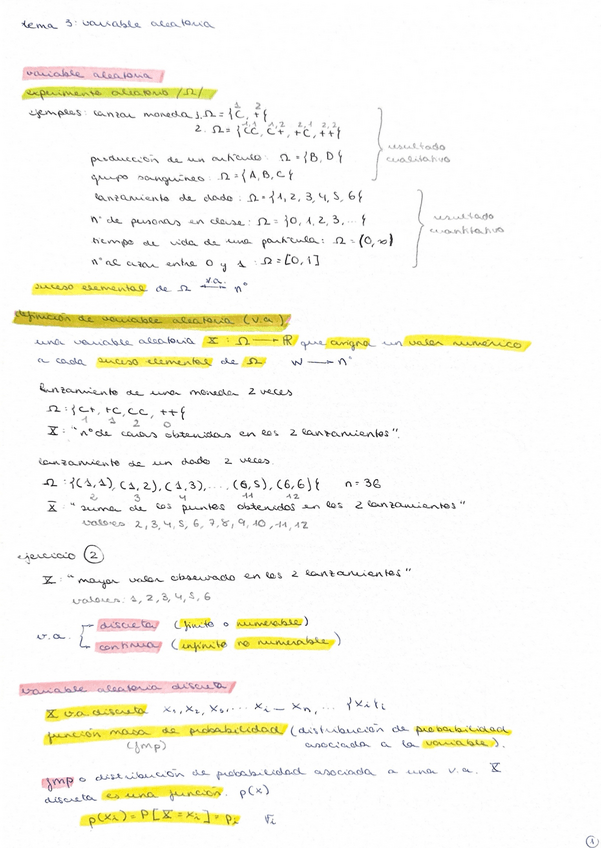 tema 3: variable aleatoria
variable aleatoria
experimento aleatorio /Ω/
ejemplos: lanzar moneda 1. Ω = {C, +}
1 2
2. Ω = {CC, C+, +C, ++}
1,1 1,2 2,1 2,2
resultado cualitativo
producción de un artículo: Ω = {B, D}
grupo sanguíneo: Ω = {A, B, C}
lanzamiento de dado: Ω = {1, 2, 3, 4, 5, 6}
nº de personas en clase: Ω = {0, 1, 2, 3, ...}
resultado cuantitativo
tiempo de vida de una partícula: Ω = (0, ∞)
nº al azar entre 0 y 1: Ω = [0, 1]
suceso elemental de Ω v.a. nº
definición de variable aleatoria (v.a.)
una variable aleatoria X: Ω → ℝ que asigna un valor numérico
a cada suceso elemental de Ω w → nº
lanzamiento de una moneda 2 veces
Ω: {C+, +C, CC, ++}
1 1 2 0
X: "nº de caras obtenidas en los 2 lanzamientos".
lanzamiento de un dado 2 veces.
Ω: {(1,1), (1,2), (1,3), ..., (6,5), (6,6)} n = 36
2 3 4 11 12
X: "suma de los puntos obtenidos en los 2 lanzamientos"
valores 2, 3, 4, 5, 6, 7, 8, 9, 10, 11, 12
ejercicio 2
X: "mayor valor observado en los 2 lanzamientos"
valores: 1, 2, 3, 4, 5, 6
v.a. discreta (finito o numerable)
continua (infinito no numerable)
variable aleatoria discreta
X v.a. discreta x₁, x₂, x₃, ... xᵢ — xₙ, ... {xᵢ}ᵢ
función masa de probabilidad (distribución de probabilidad
(fmp) asociada a la variable).
fmp o distribución de probabilidad asociada a una v.a. X
discreta es una función. p(x)
p(xᵢ) = P[X = xᵢ] = pᵢ ∀i
1